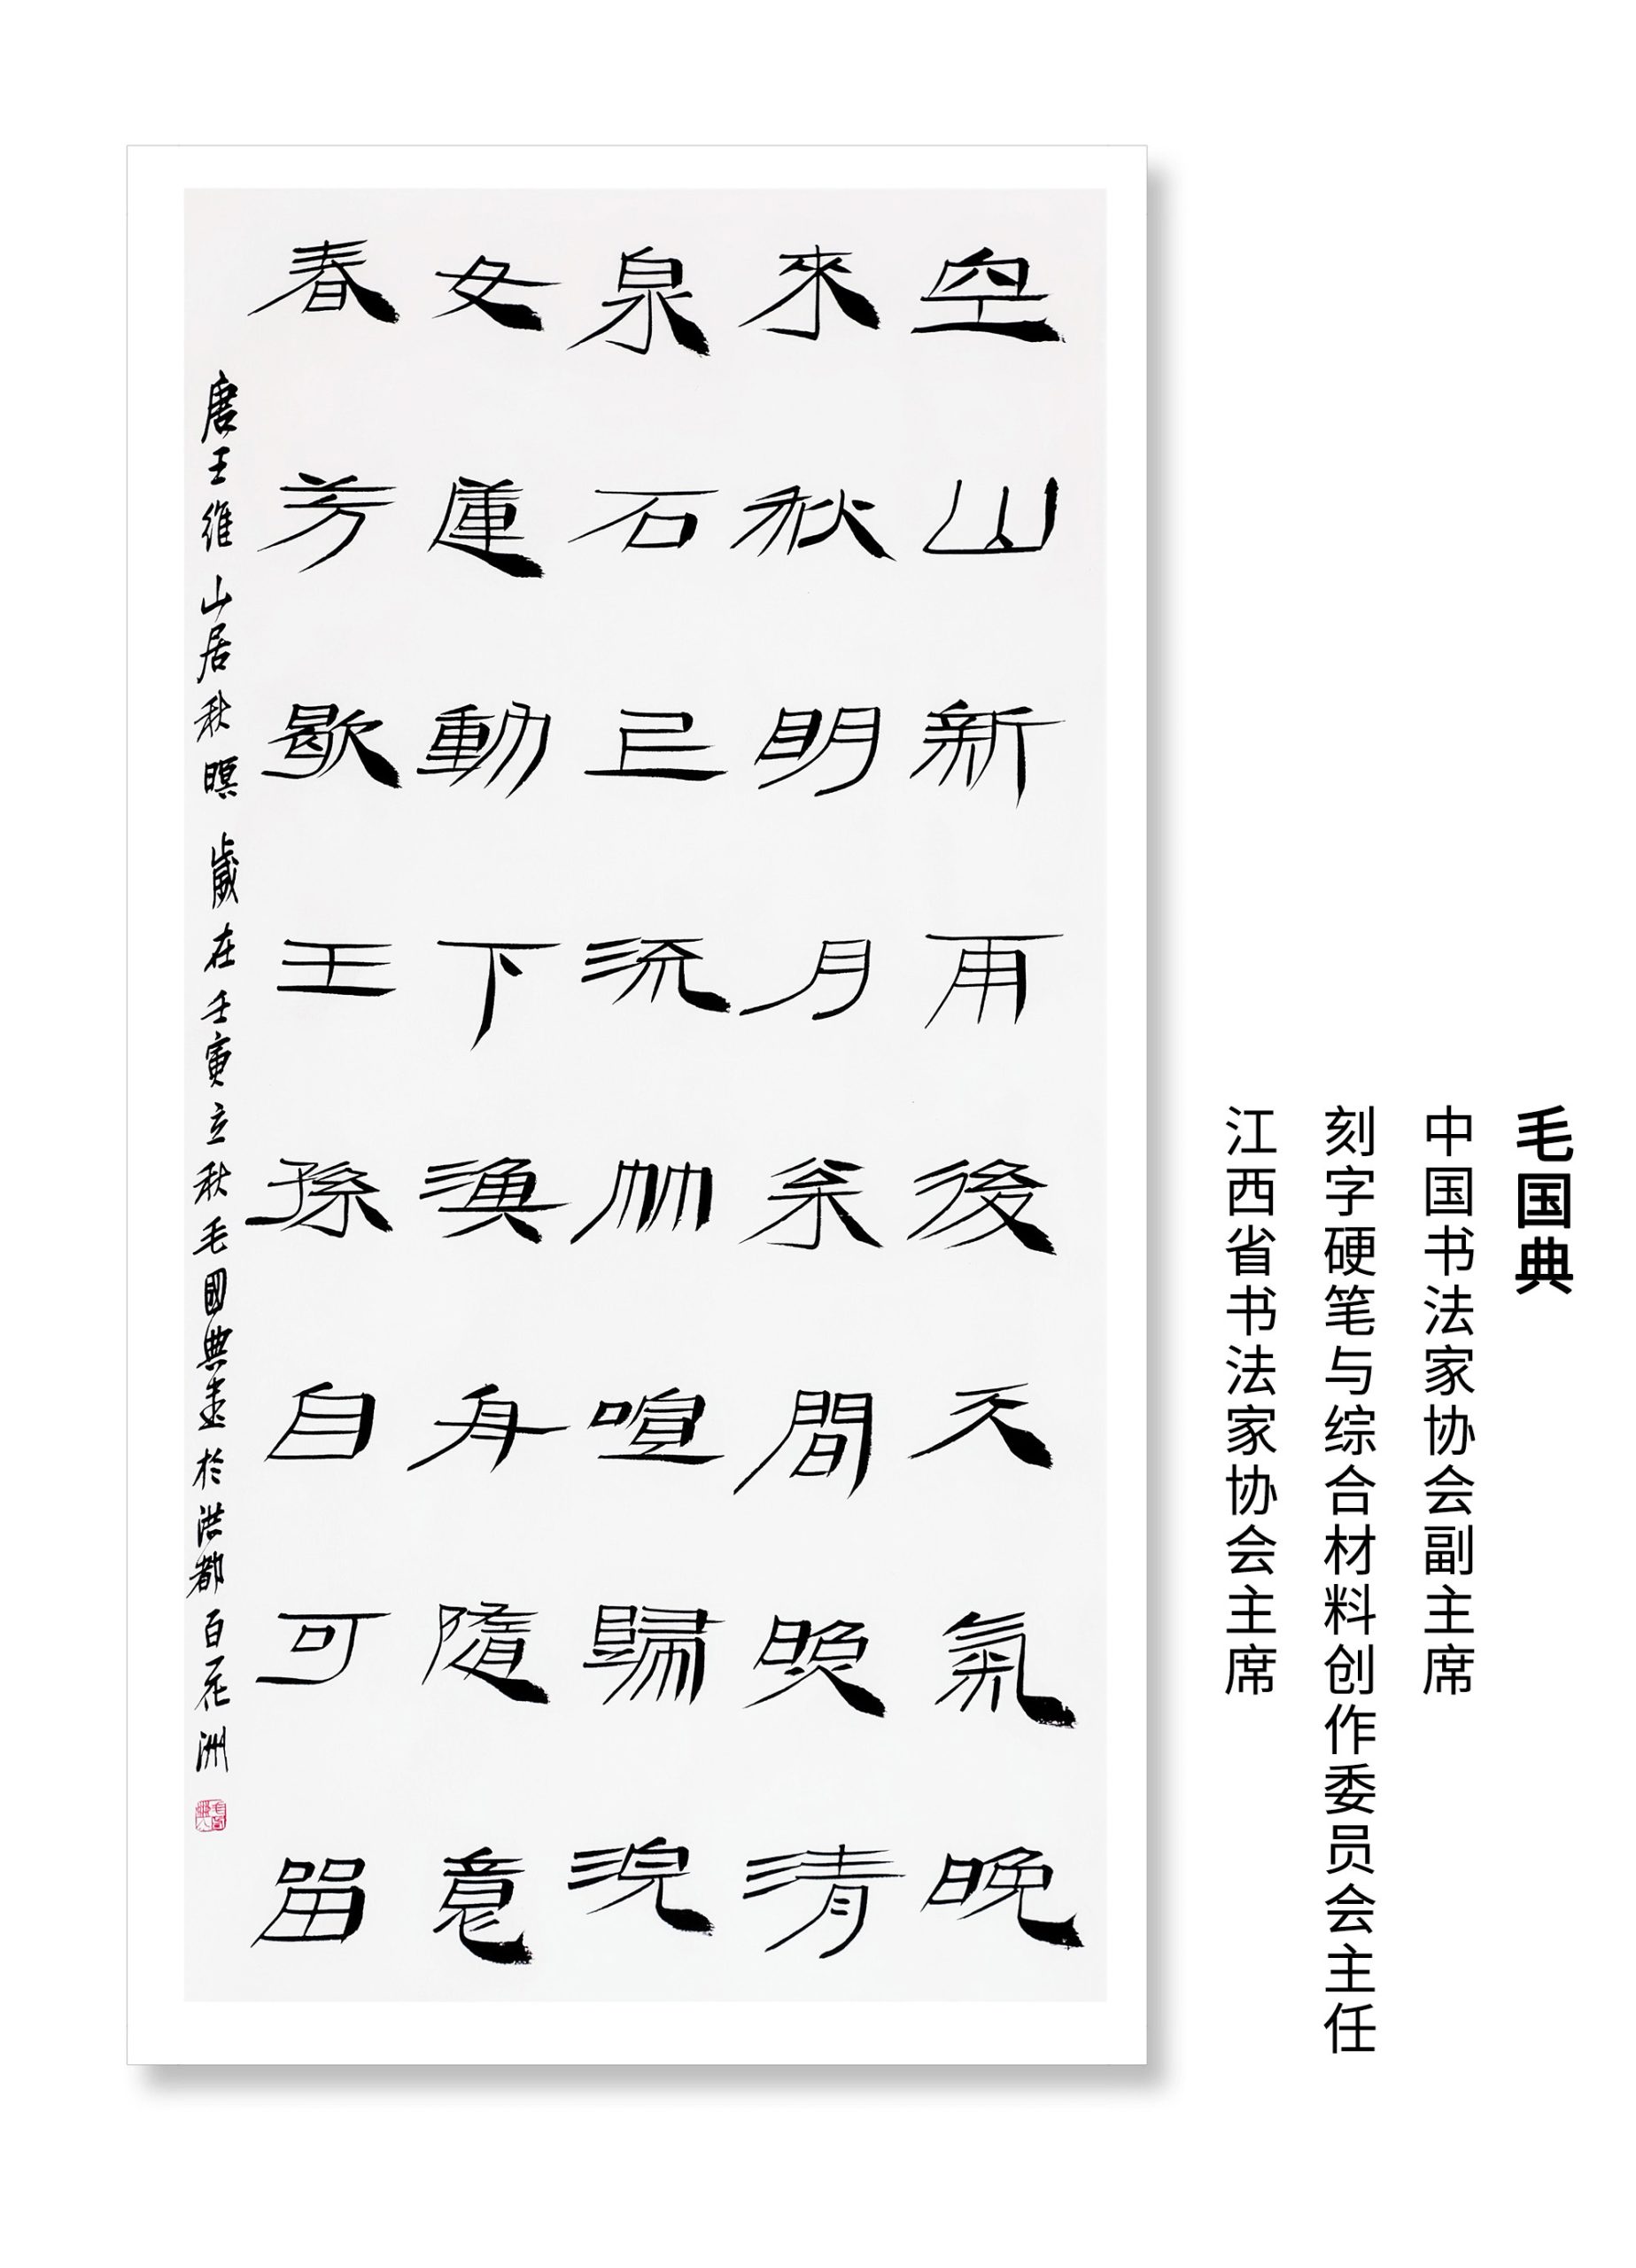 毛国典
中国书法家协会副主席
刻字硬笔与综合材料创作委员会主任
江西省书法家协会主席
空山新雨後天氣晚
來秋明月枀間照清
泉石上流竹喧歸浣
女蓮動下漁舟隨意
春芳歇王孫自可留
唐王維山居秋暝歲在壬寅立秋毛國典書於洪都百花洲